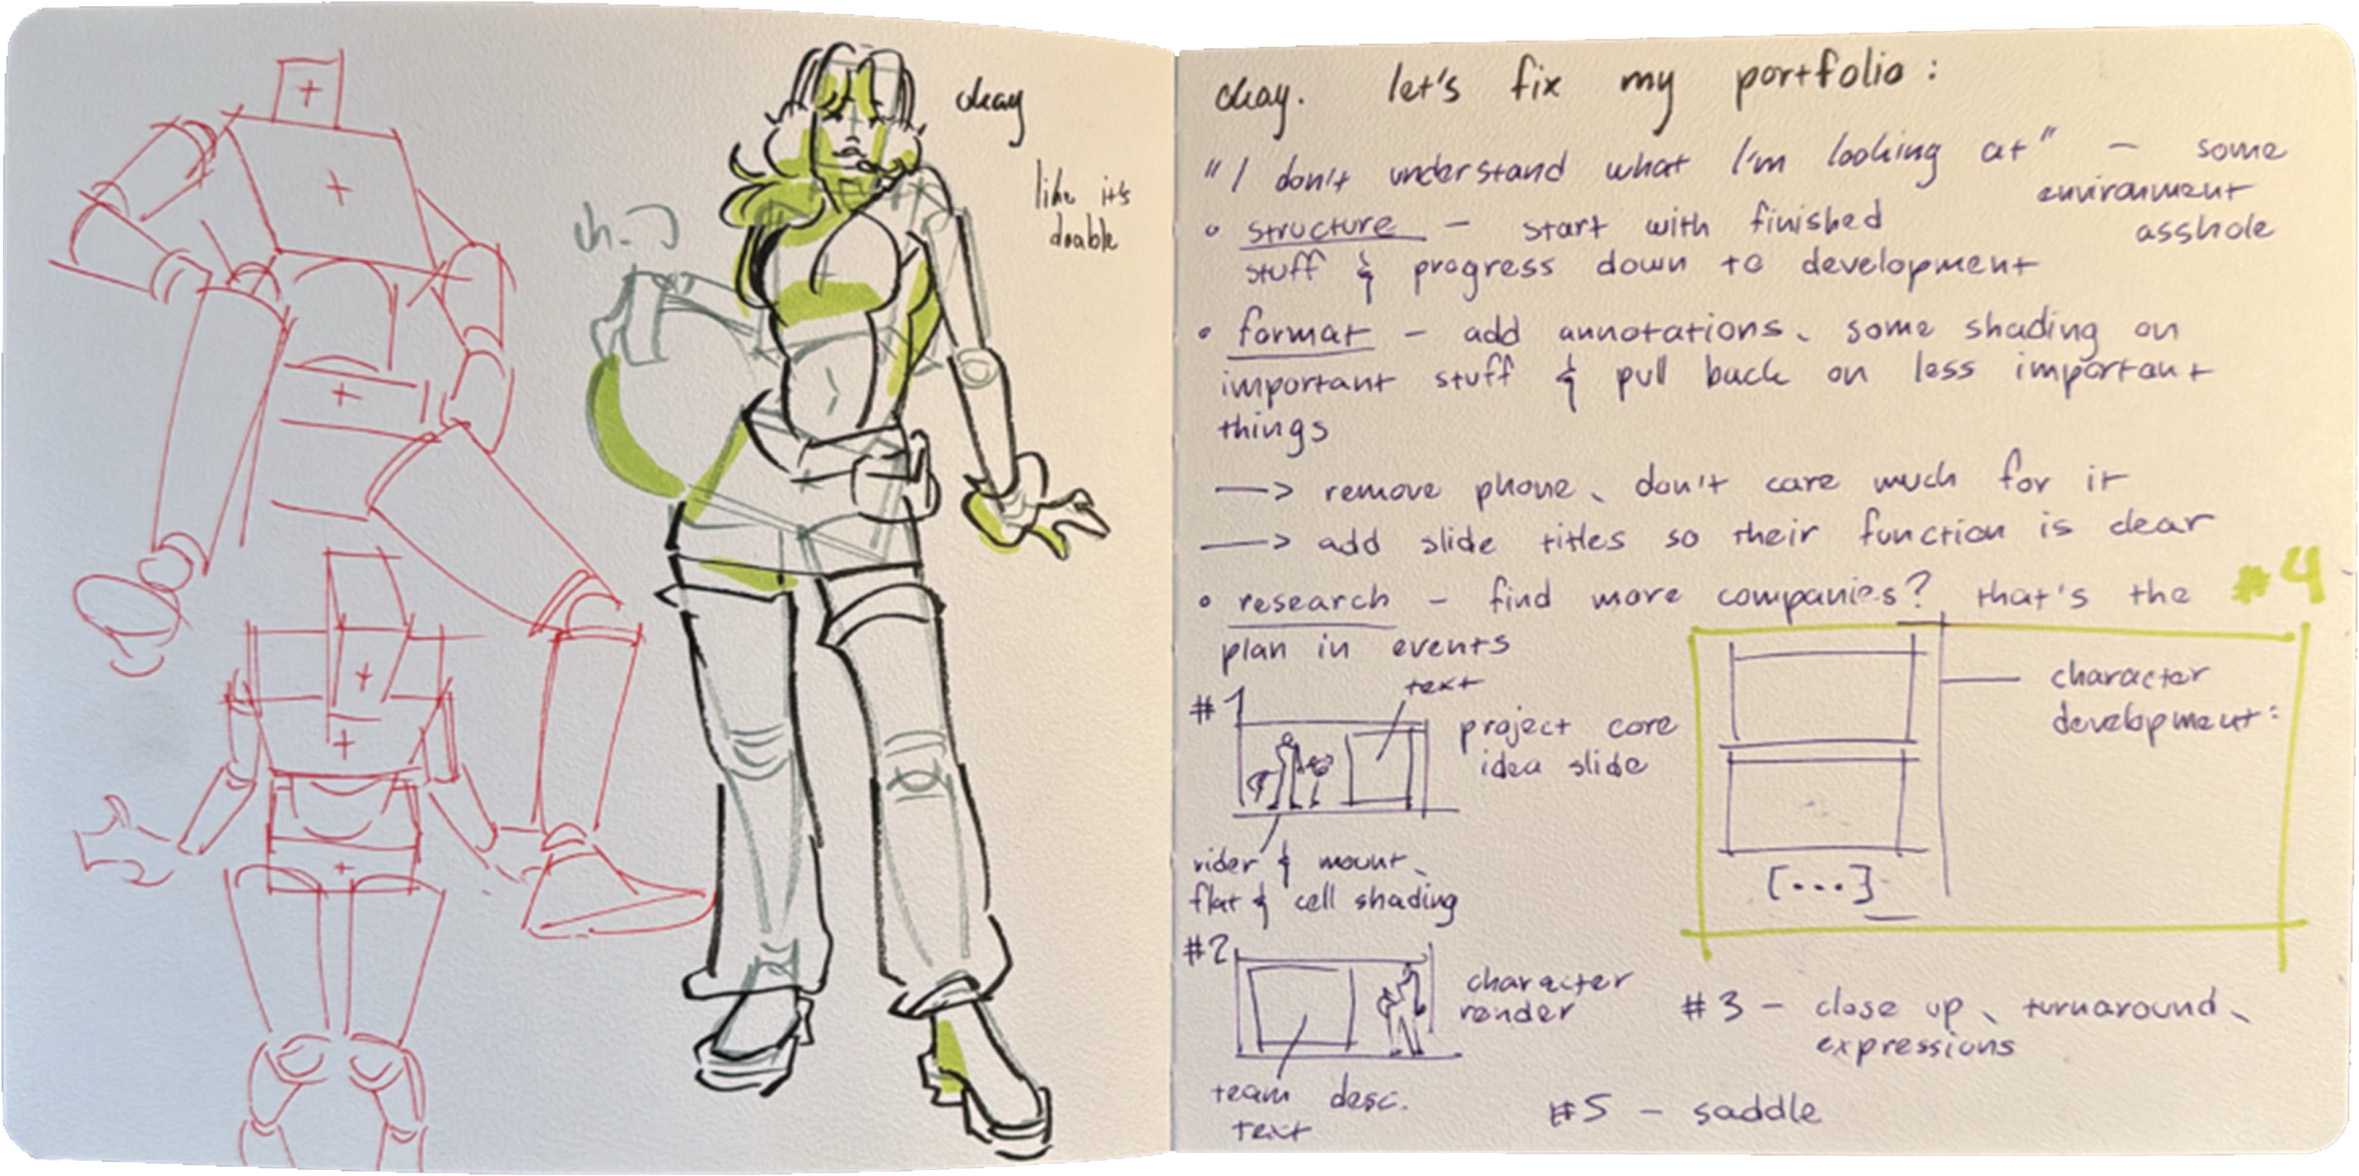 okay
like it's
doable
okay. let's fix my portfolio:
"I don't understand what I'm looking at" – some
environment
asshole
• structure – start with finished
stuff & progress down to development
• format – add annotations, some shading on
important stuff & pull back on less important
things
—> remove phone, don't care much for it
—> add slide titles so their function is clear
• research – find more companies? that's the
plan in events
#1
text
project core
idea slide
rider & mount,
flat & cell shading
#2
character
render
team desc.
text
#4
character
development:
[...]
#3 – close up, turnaround,
expressions
#5 – saddle